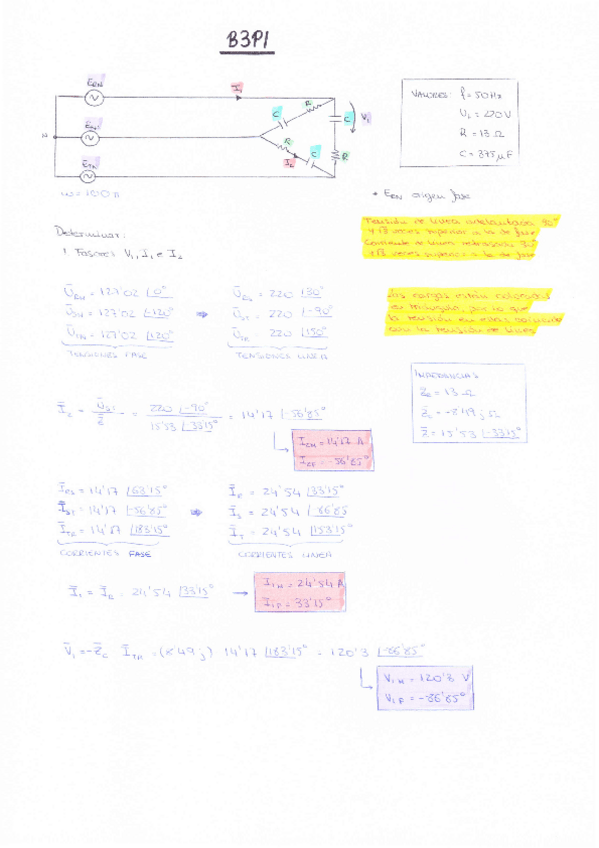 B3P1
E_RN
I₁
R
C
C
V₁
N
E_SN
R
R
I₂
C
E_TN
ω = 100π
VALORES: f = 50 Hz
U_L = 220 V
R = 13 Ω
C = 375 μF
* E_RN origen fase
Determinar:
* Fasores V₁, I₁ e I₂
Tensión de línea adelantada 30°
y √3 veces superior a la de fase
Corriente de línea retrasada 30°
y √3 veces superior a la de fase
Ū_RN = 127'02 ∠0°
Ū_SN = 127'02 ∠-120°
Ū_TN = 127'02 ∠120°
TENSIONES FASE
⇒
Ū_RS = 220 ∠30°
Ū_ST = 220 ∠-90°
Ū_TR = 220 ∠150°
TENSIONES LINEA
Las cargas están colocadas
en triángulo, por lo que
la tensión en ellas
con la tensión de línea
IMPEDANCIAS
Z̄_R = 13 Ω
Z̄_C = -8'49 j Ω
Z̄ = 15'53 ∠-33'15°
Ī₂ = Ū_ST / Z̄ = 220 ∠-90° / 15'53 ∠-33'15° = 14'17 ∠-56'85°
I₂M = 14'17 A
I₂F = -56'85°
Ī_RS = 14'17 ∠63'15°
Ī_ST = 14'17 ∠-56'85°
Ī_TR = 14'17 ∠183'15°
CORRIENTES FASE
⇒
Ī_R = 24'54 ∠33'15°
Ī_S = 24'54 ∠-86'85°
Ī_T = 24'54 ∠153'15°
CORRIENTES LINEA
Ī₁ = Ī_R = 24'54 ∠33'15°
I₁M = 24'54 A
I₁F = 33'15°
V̄₁ = -Z̄_C Ī_TR = (8'49j) 14'17 ∠183'15° = 120'3 ∠-86'85°
V₁M = 120'3 V
V₁F = -86'85°